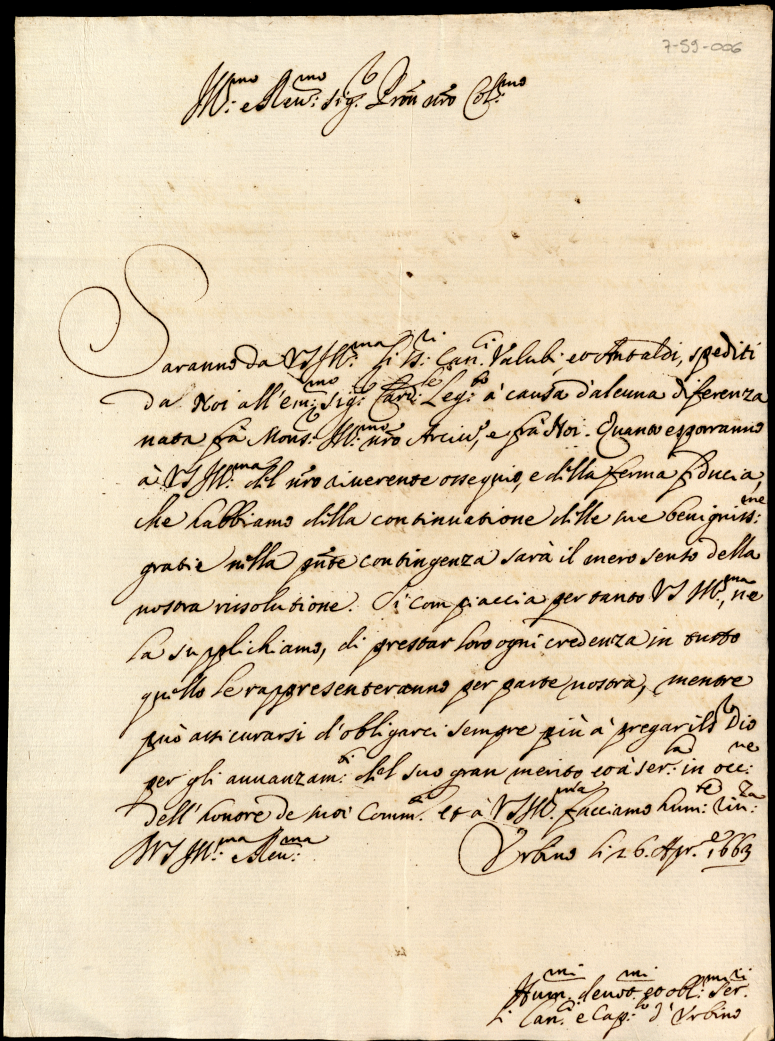 7-59-006
Ill.mo e Reu.mo Sig.r Pron nro Col.mo
Saranno da VS Ill.ma li SS.ri Can.ci Valubi, et Antaldi, spediti
da Noi all'em.mo Sig.r Card.le Leg.to à causa d'alcuna diferenza
nata frà Mons. Ill.mo nro Arciu.o, e frà Noi. Quanto esporranno
à VS Ill.ma del nro riuerente ossequio, e della ferma fiducia,
che habbiamo della continuatione delle sue benigniss.me
gratie nella pnte contingenza sarà il mero sento della
nostra rissolutione. Si compiaccia per tanto VS Ill.ma, ne
la supplichiamo, di prestar loro ogni credenza in tutto
quello le rappresenteranno per parte nostra, mentre
può assicurarsi d'obligarci sempre più à pregarile Dio
per gli auuanzam.ti del suo gran merito et à ser.la in occ.ne
dell'honore de suoi Comm.di et à VS Ill.ma facciamo hum.te riu.za
Di VS Ill.ma e Reu.ma
Vrbino li 26. Apr.e 1663
Hum.mi deuot.mi et obl.mi Ser.ri
Li Can.ci e Cap.lo d'Vrbino